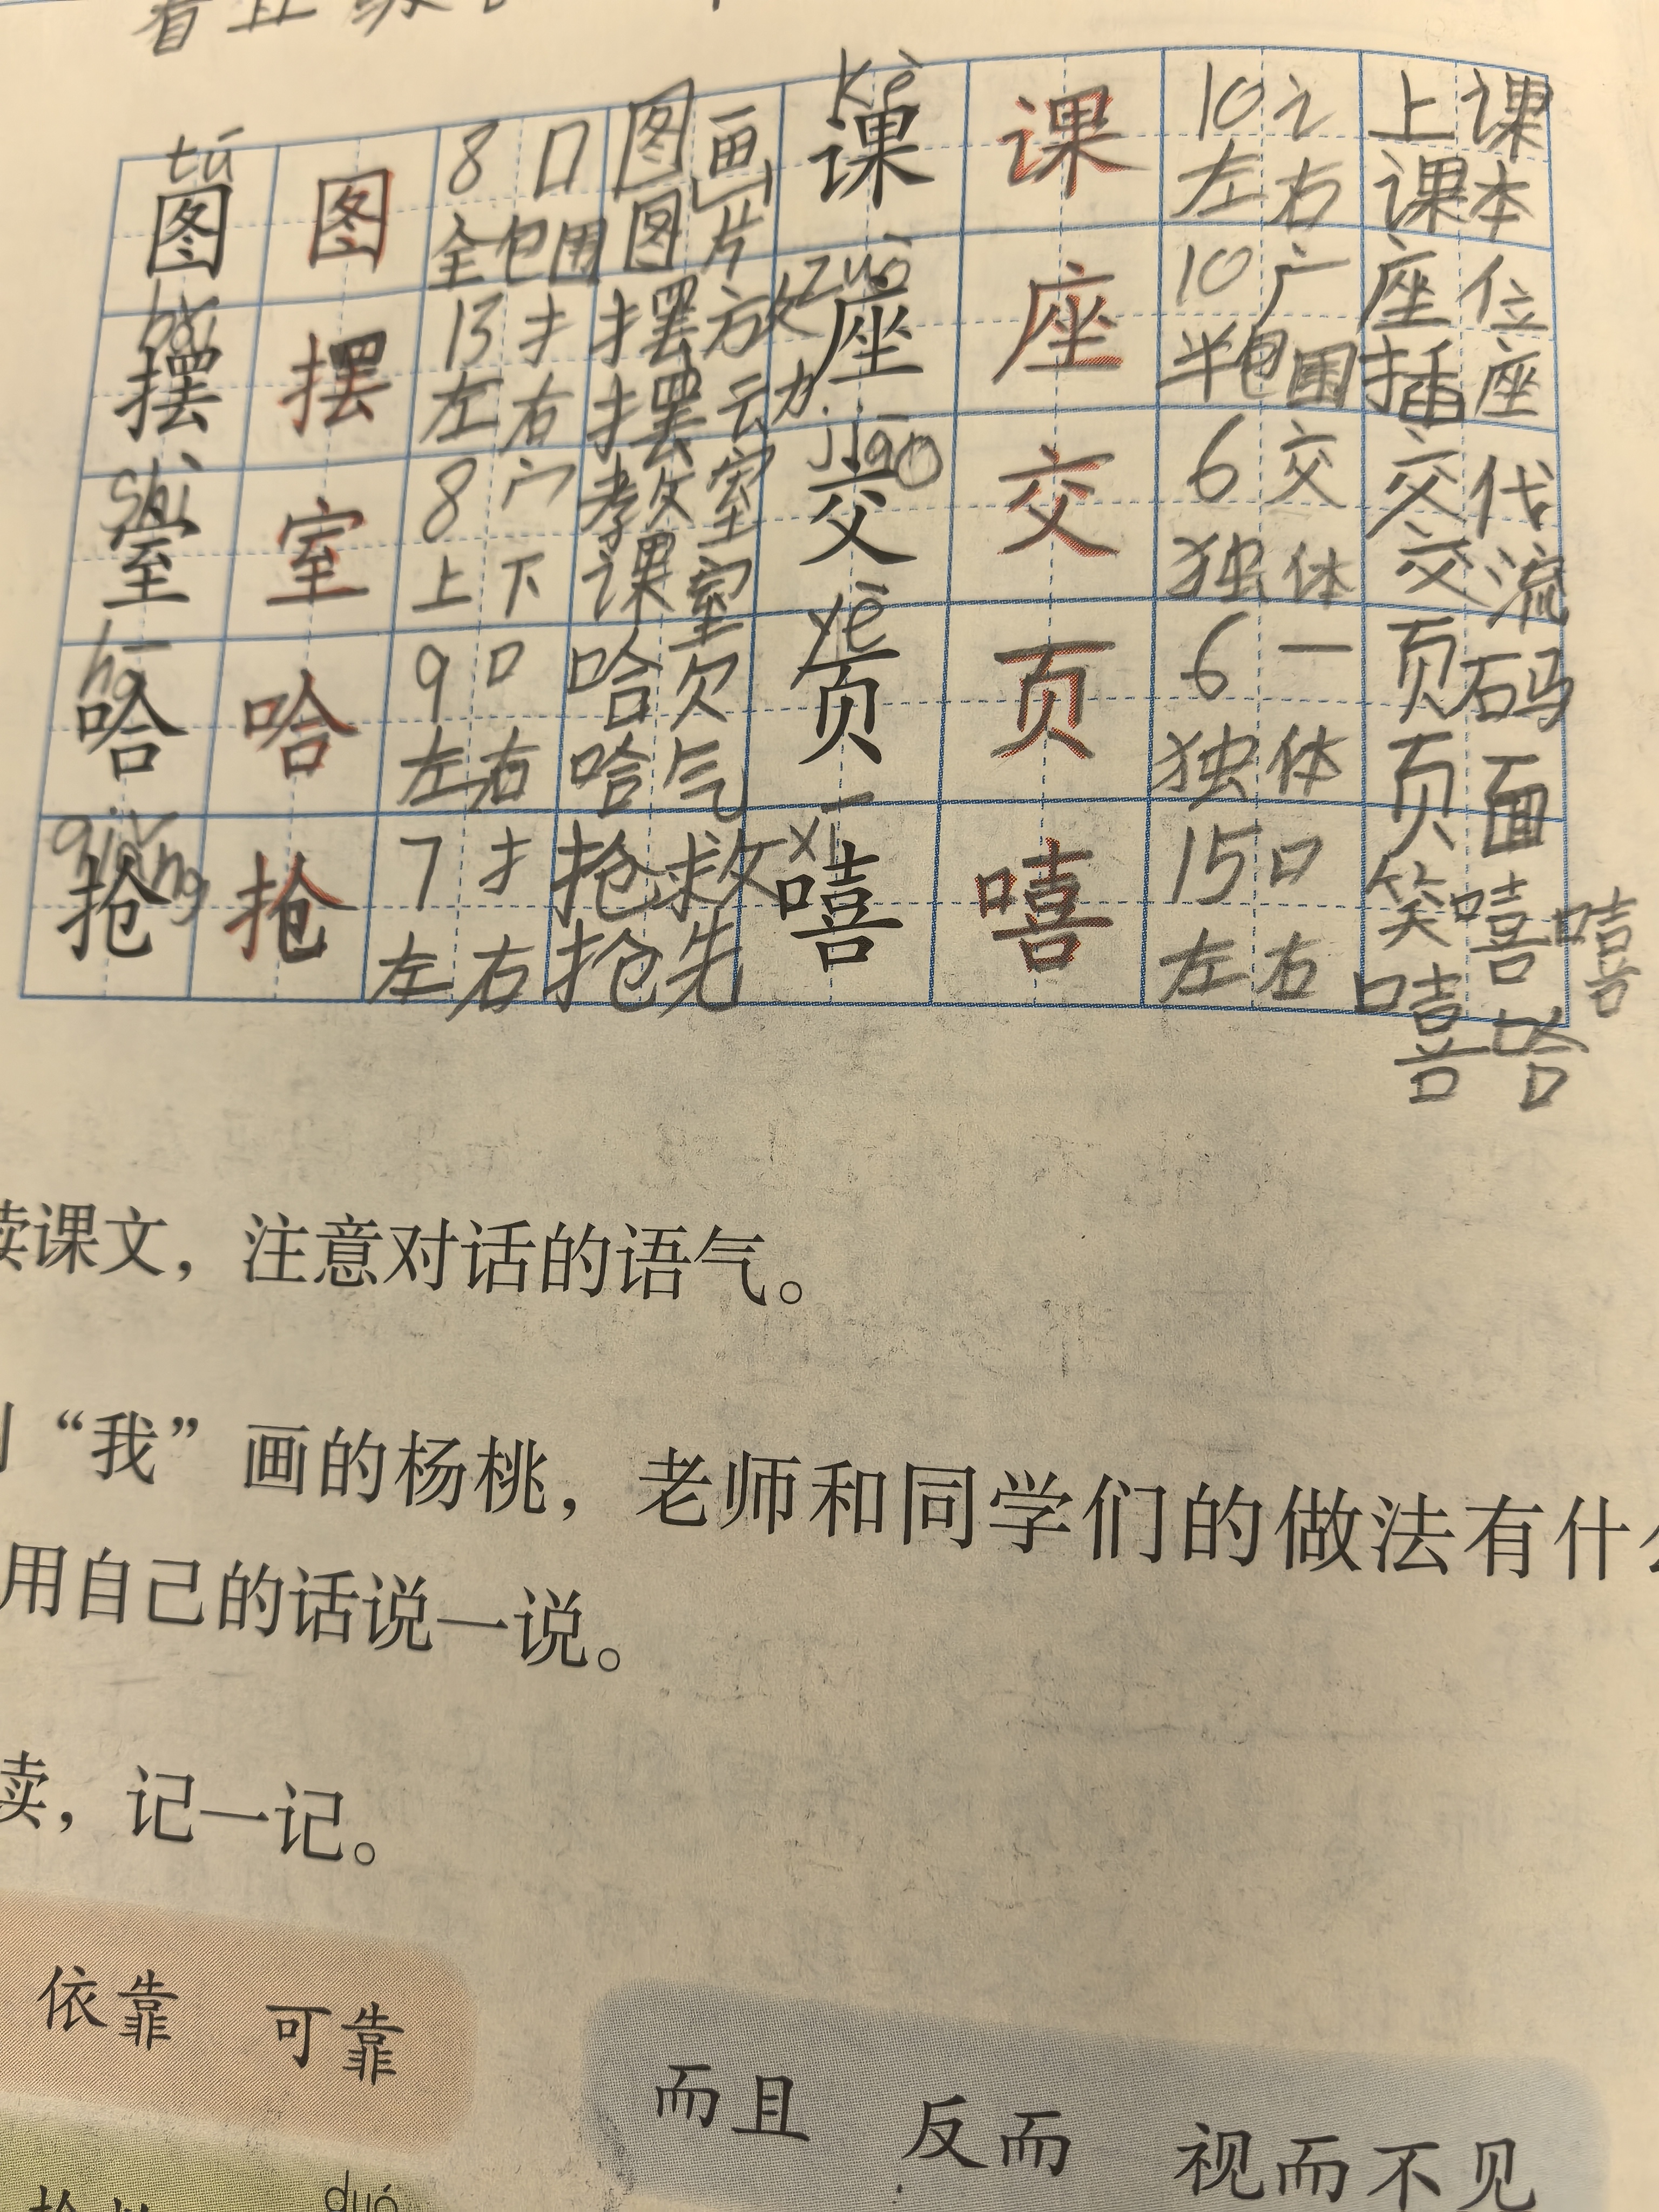 tú kè
图 图 8 囗 图画 课 课 10 讠 上课
全包围 图片 左右 课本
bǎi zuò
摆 摆 13 扌 摆放 座 座 10 广 座位
左右 摆动 半包围 插座
shì jiāo
室 室 8 宀 教室 交 交 6 交 交代
上下 课室 独体 交流
hā yè
哈 哈 9 口 哈欠 页 页 6 一 页码
左右 哈气 独体 页面
qiǎng xī
抢 抢 7 扌 抢救 嘻 嘻 15 口 笑嘻嘻
左右 抢先 左右 嘻哈
读课文，注意对话的语气。
“我”画的杨桃，老师和同学们的做法有什么
用自己的话说一说。
读，记一记。
依靠 可靠
而且 反而 视而不见
duó